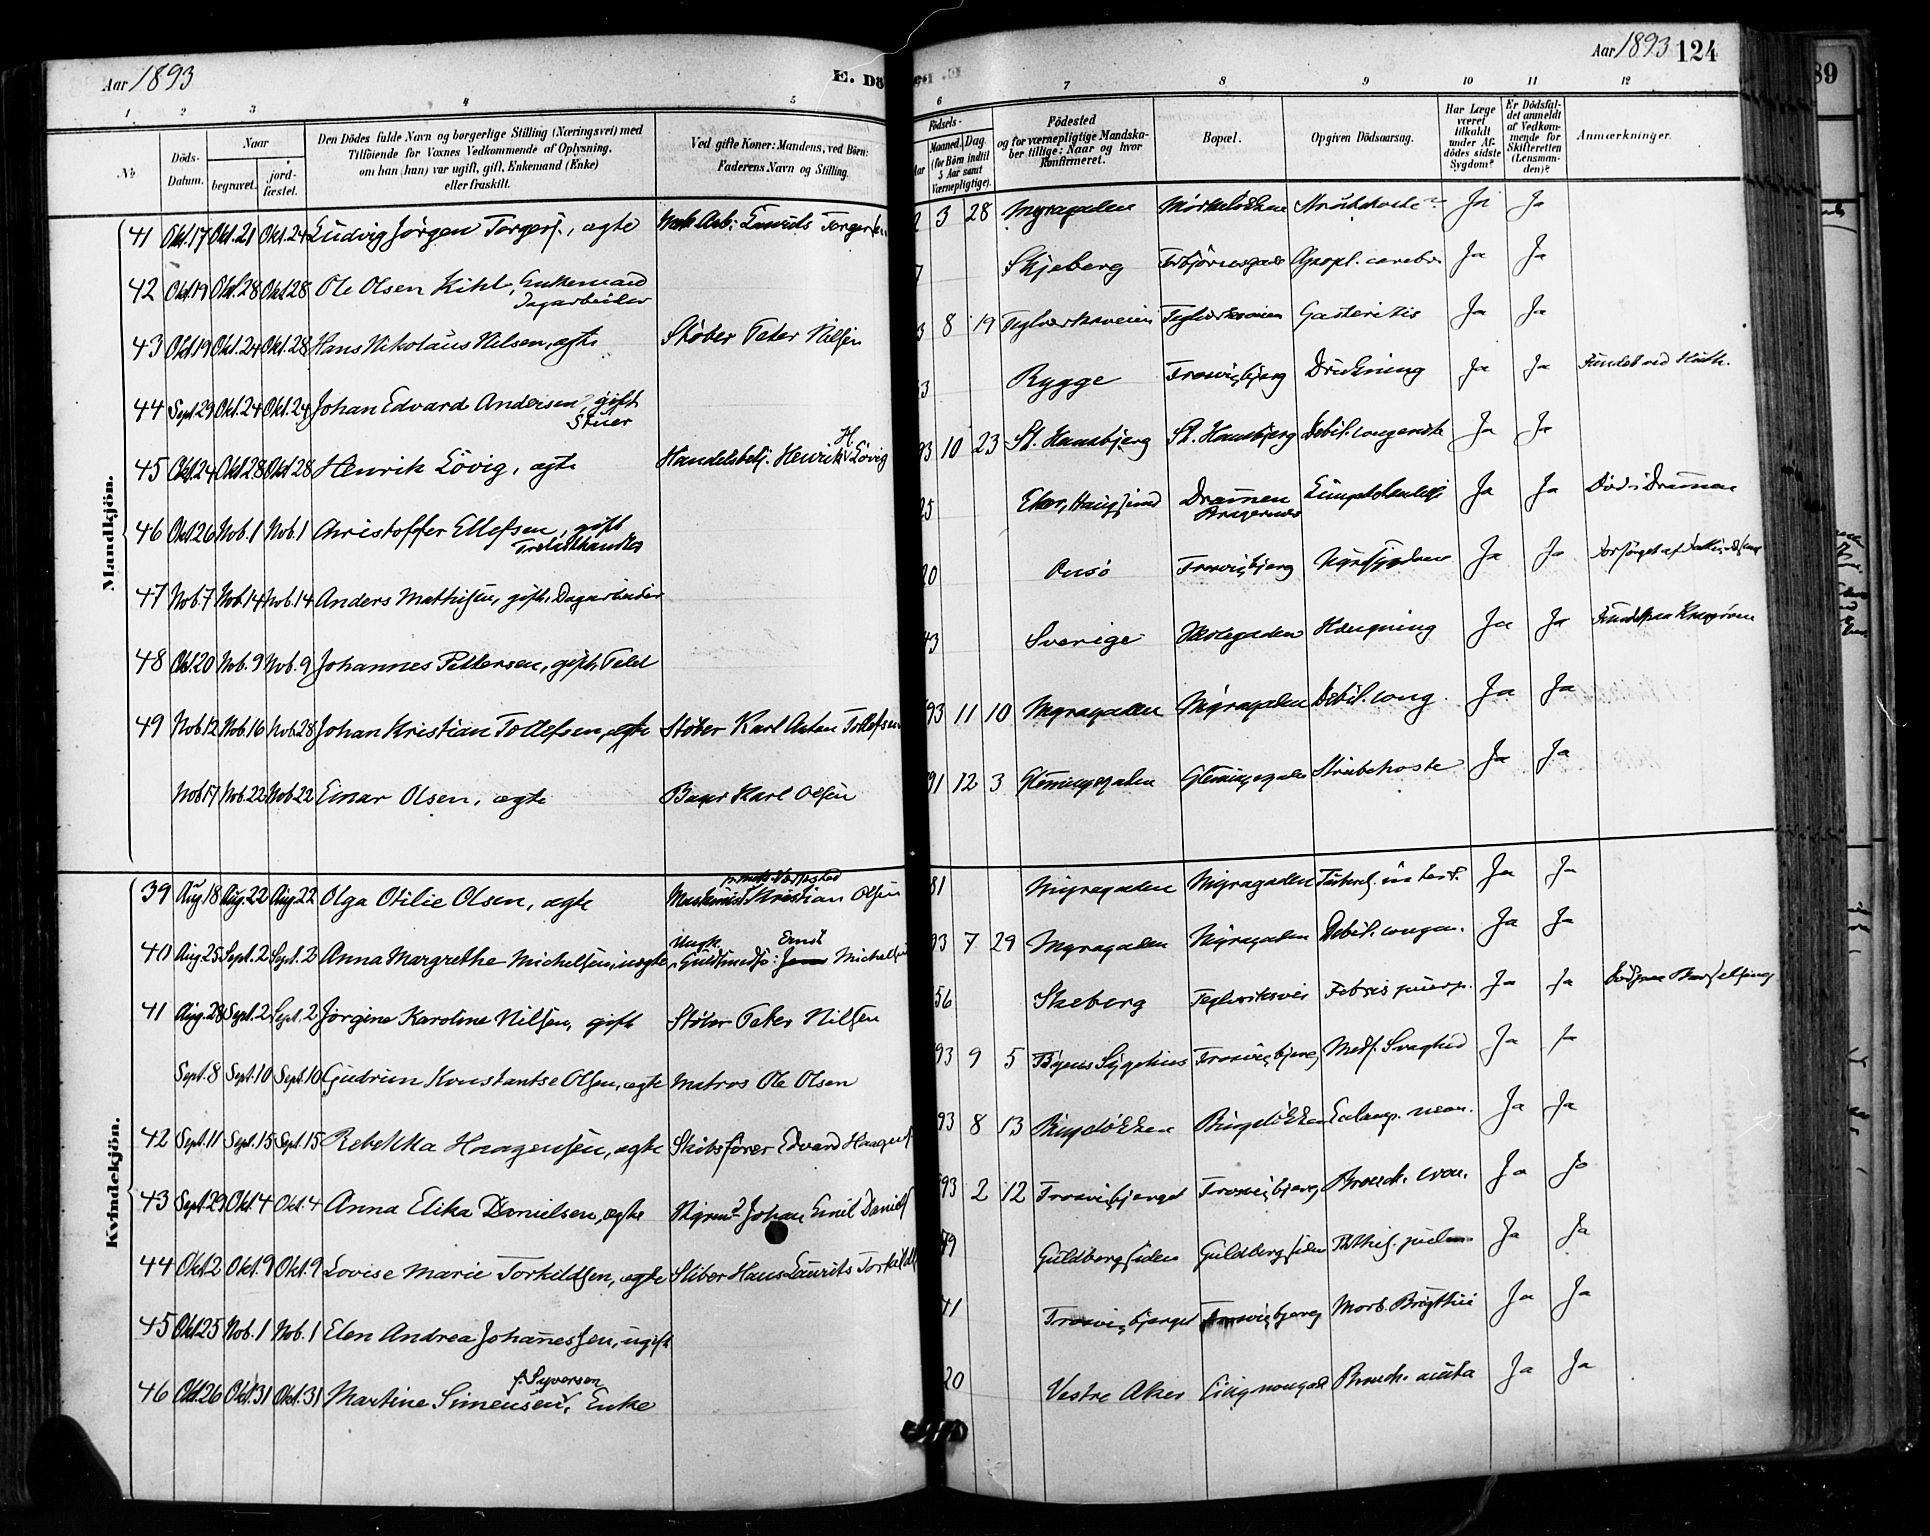 Aar 1893
E. Dö
Aar 1893 124
1 2 3 4 5 6 7 8 9 10 11 12
No
Döds-Datum.
Naar
begravet.
jord-fæstet.
Den Dödes fulde Navn og borgerlige Stilling (Næringsvei) med Tilföiende for Voxnes Vedkommende af Oplysning, om han (hun) var ugift, gift, Enkemand (Enke) eller fraskilt.
Ved gifte Koner: Mandens, ved Börn: Faderens Navn og Stilling.
Födsels-
Aar
Maaned. Dag.
(for Börn indtil 5 Aar samt Værnepligtige).
Födested og for værnepligtige Mandskaber tillige: Naar og hvor Konfirmeret.
Bopæl.
Opgiven Dödsaarsag.
Har Læge været tilkaldt under Afdödes sidste Sygdom?
Er Dödsfaldet anmeldt af Vedkommende for Skifteretten (Lensmanden)?
Anmærkninger.
Mandkjön.
41 Okt.17 Okt.21 Okt.24 Ludvig Jörgen Torgers., ægte Laurits Torgersen 3 28 Myragaden Ja Ja
42 Okt.19 Okt.28 Okt.28 Ole Olsen Kihl, Enkemand Dagarbeider Skjeberg Apopl. cerebri Ja Ja
43 Okt.19 Okt.24 Okt.28 Hans Nikolaus Nilsen, ægte Stöber Peter Nilsen 3 8 19 Teglverksveien Teglverksveien Gasteritis Ja Ja
44 Sept.29 Okt.24 Okt.24 Johan Edvard Andersen, gift Stuer 3 Rygge Trosvigbjerg Drukning Ja Ja
45 Okt.24 Okt.28 Okt.28 Henrik Lövig, ægte Handelsbetj. Henrik H. Lövig 93 10 23 St. Hansbjerg St. Hansbjerg Debil. congenita Ja Ja
46 Okt.26 Nob.1 Nob.1 Christoffer Ellefsen, gift Trælasthandler 25 Eker, Haugsund Drammen Bragernæs Ja Ja Död i Drammen
47 Nob.7 Nob.14 Nob.14 Anders Mathisen, gift, Dagarbeider 20 Onsö Trosvigbjerg Ja Ja
48 Okt.20 Nob.9 Nob.9 Johannes Pettersen, gift, 43 Sverige Hængning Ja Ja
49 Nob.12 Nob.16 Nob.28 Johan Kristian Tollefsen, ægte Stöber Karl Anton Tollefsen 93 11 10 Myragaden Myragaden Debil. cong. Ja Ja
Nob.17 Nob.22 Nob.22 Einar Olsen, ægte Bager Karl Olsen 91 12 3 Glemmingegaden Glemmingegaden Strubehoste Ja Ja
Kvindekjön.
39 Aug.18 Aug.22 Aug.22 Olga Otilie Olsen, ægte Maskinist Kristian Olsen 81 Myragaden Myragaden Ja Ja
40 Aug.25 Sept.2 Sept.2 Anna Margrethe Michelsen, uægte Ungk. Guldsmedsv. Ernst Michelsen 93 7 29 Myragaden Myragaden Debil. congen. Ja Ja
41 Aug.28 Sept.2 Sept.2 Jörgine Karoline Nilsen, gift Stöber Peter Nilsen 56 Skeberg Teglverksvei Febris puerp. Ja Ja
Sept.8 Sept.10 Sept.10 Gudrun Konstantse Olsen, ægte Matros Ole Olsen 93 9 5 Byens Sygehus Trosvigbjerg Medf. Svaghed Ja Ja
42 Sept.11 Sept.15 Sept.15 Rebekka Haagensen, ægte Skibsförer Edvard Haagens 93 8 13 Bingelökken Bingelökken Eclamp. Ja Ja
43 Sept.29 Okt.4 Okt.4 Anna Elika Danielsen, ægte Johan Emil Daniels 93 2 12 Trosvigbjerget Trosvigbjerg Bronch. Ja Ja
44 Okt.2 Okt.9 Okt.9 Lovise Marie Torkildsen, ægte Stöber Hans Laurits Torkilds 79 Guldbergsiden Guldbergsiden Phthis. pulm. Ja Ja
45 Okt.25 Nob.1 Nob.1 Elen Andrea Johannessen, ugift 41 Trosvigbjerget Trosvigbjerg Morb. Brigthii Ja Ja
46 Okt.26 Okt.31 Okt.31 Martine Simensen f. Syversen, Enke 20 Vestre Aker Bronch. acuta Ja Ja